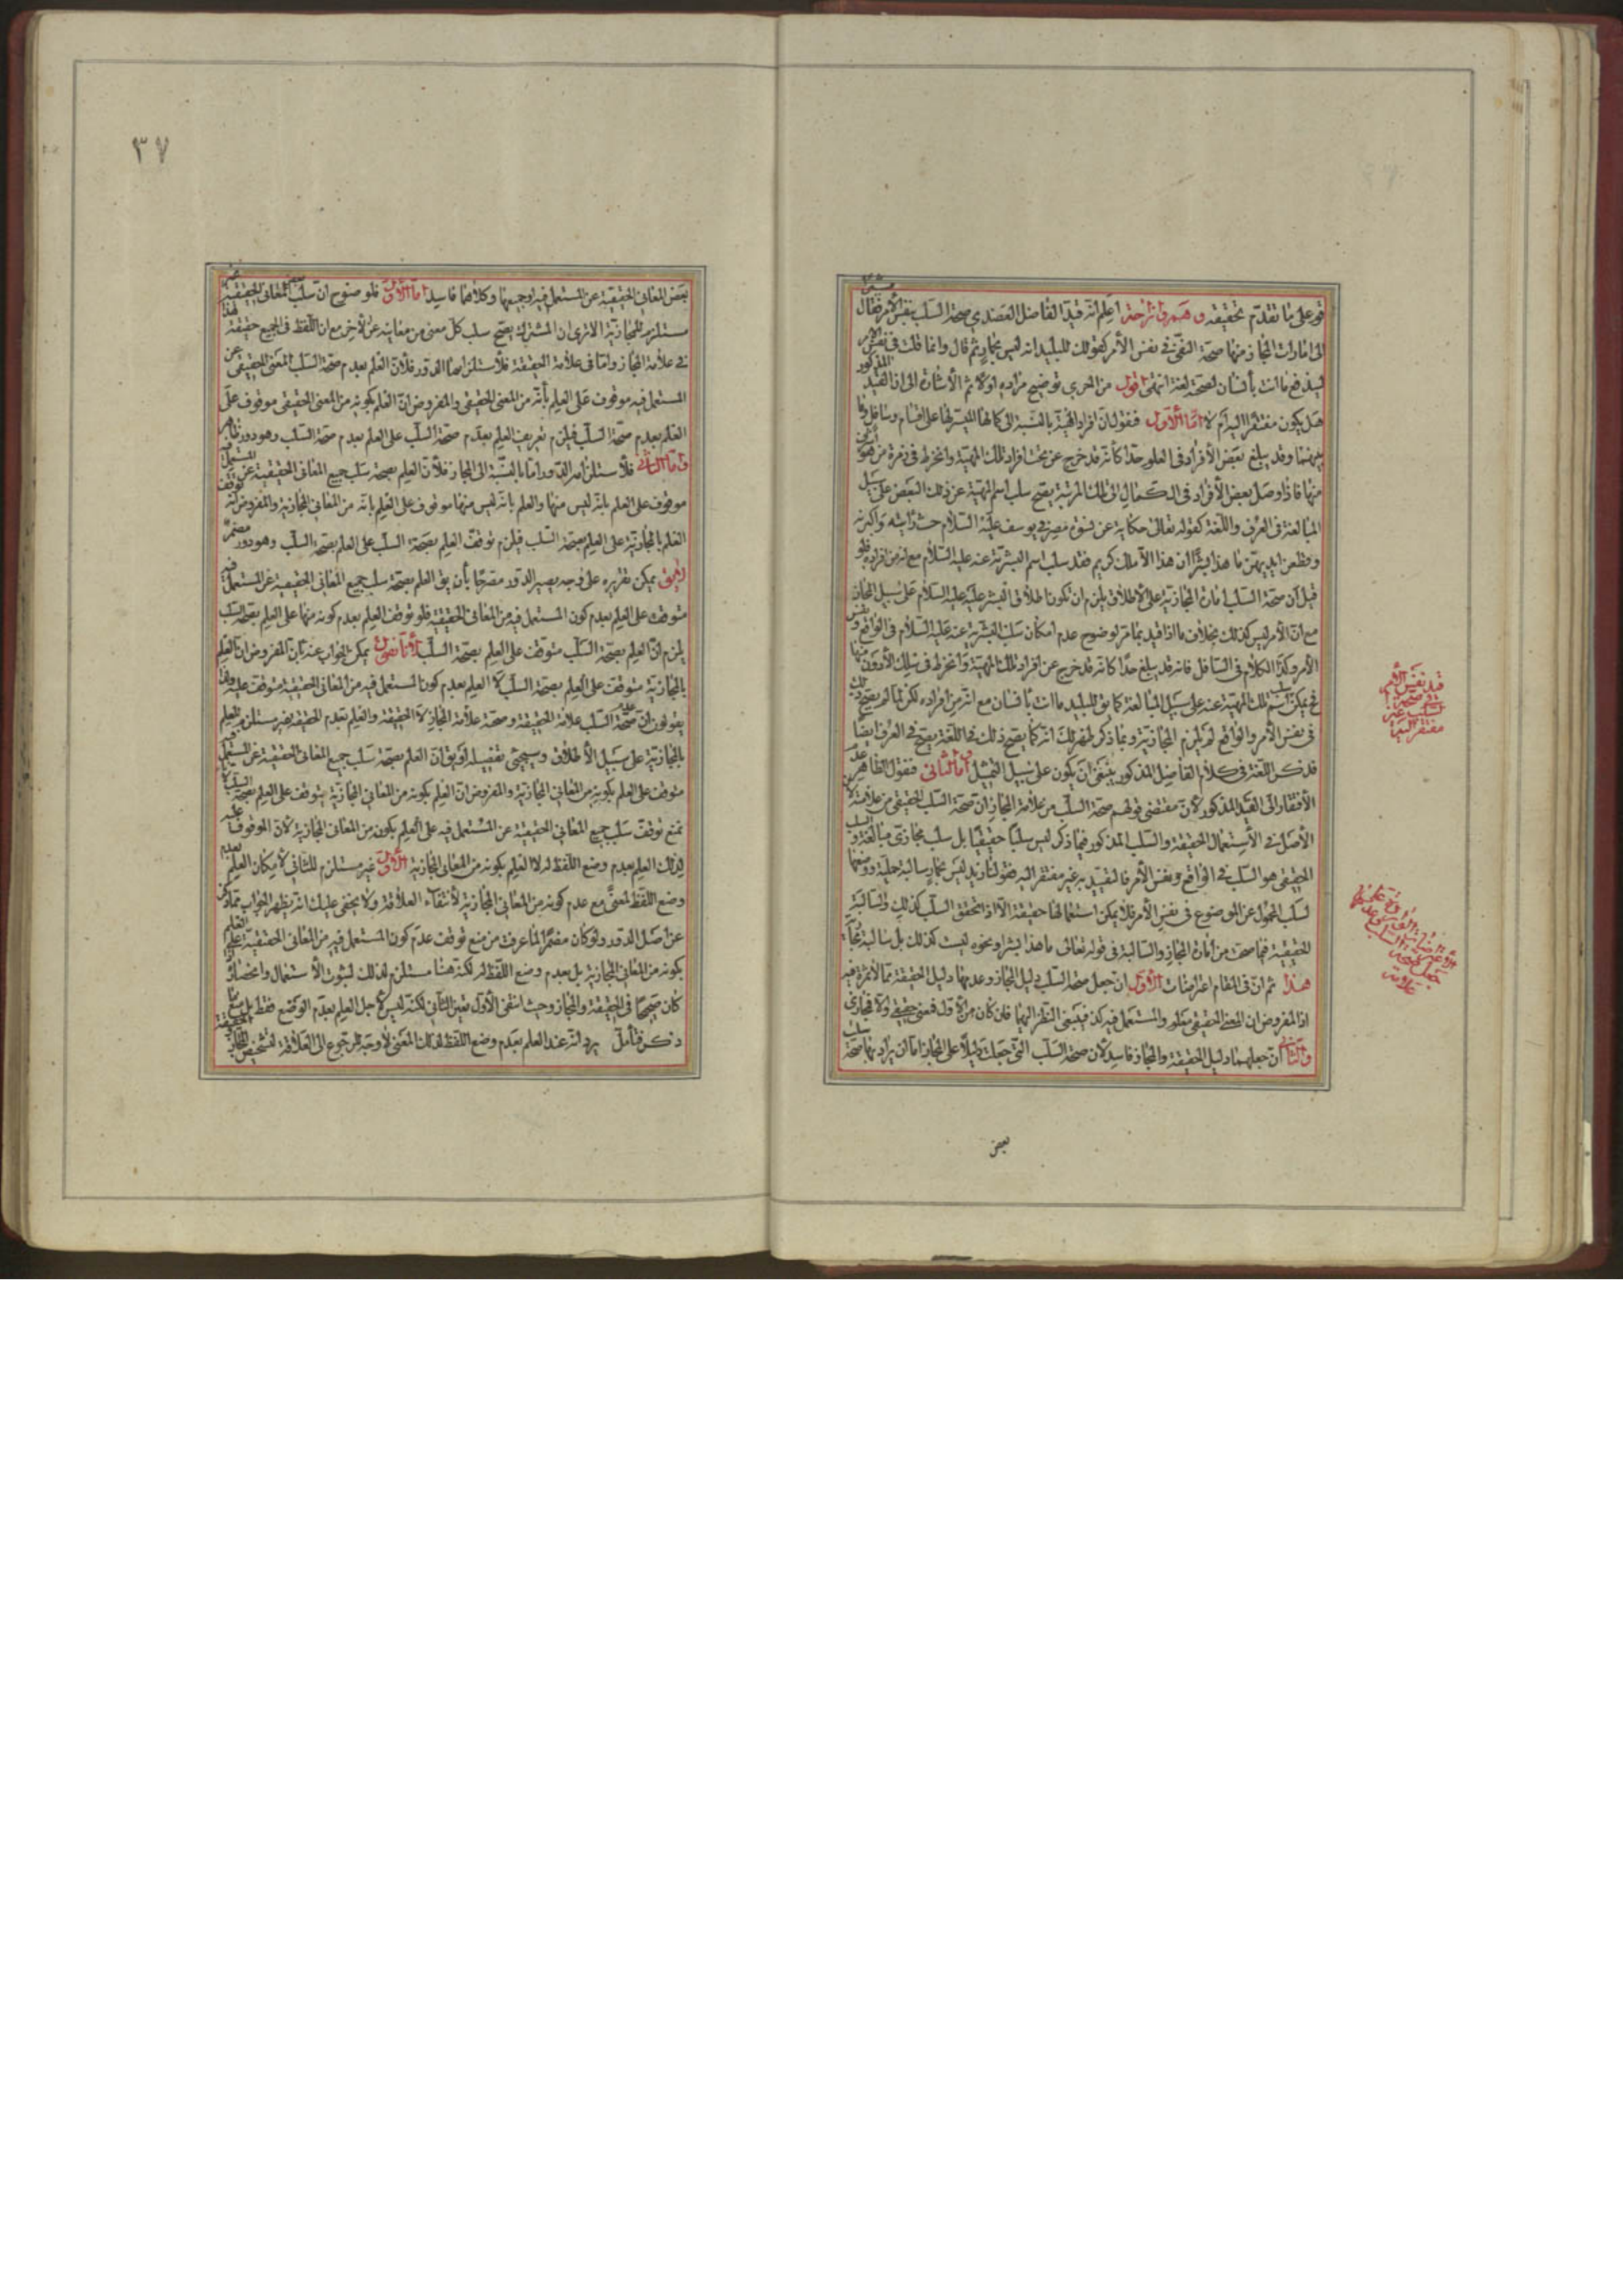 قه على ما تقدّم تحقيقه وهم وازاحة اعلم انّه قيد الفاضل العضدي صحة السلب بنفس الأمر فقال
الى امارات المجاز منها صحة النفى فى نفس الأمر كقولك للبليد انه ليس بحمار ثم قال وانما قلت فى نفس الأمر
ليندفع ما انت بأنسان لصحته لغة انتهى اقول من الحرى توضيح مراده اولا ثم الأشارة الى ان القيد المذكور
هل يكون مفتقرا اليه ام لا امّا الأول فنقول ان افراد المهيّة بالنسبة الى كمالها الميسّر لها على اقسام وسافل وما
بينهما وقد يبلغ بعض الأفراد فى العلو حدّا كأنه قد خرج عن تحت افراد تلك المهيّة وانخرط فى زمرة من هو
منها فاذا وصل بعض الأفراد فى الكمال الى تلك المرتبة يصح سلب اسم المهيّة عن ذلك البعض على سبيل
المبالغة فى العرف واللغة كقوله تعالى حكاية عن نسوة مصر فى يوسف عليه السلام حيث رأينه واكبرنه
وقطعن ايديهنّ ما هذا بشرًا ان هذا الا ملك كريم فقد سلب اسم البشرية عنه عليه السلام مع انه من افراده فلو
قيل ان صحة السلب امارة المجازية على الأطلاق يلزم ان تكون اطلاق البشر عليه عليه السلام على سبيل المجاز
مع ان الأمر ليس كذلك بخلاف ما اذا قيد بما مرّ لوضوح عدم امكان سلب البشرية عنه عليه السلام فى الواقع ونفس
الأمر وكذا الكلام فى السافل فانه قد يبلغ حدّا كانه قد خرج عن افراد تلك المهيّة وانخرط فى سلك الأدون منها
فح يمكن سلب اسم تلك المهيّة عنه على سبيل المبالغة كما يق للبليد ما انت بأنسان مع انّه من افراده لكن لما لم يصح ذلك
فى نفس الأمر والواقع لم يلزم المجازية وبما ذكر ظهر لك انه كما يصح ذلك فى اللغة يصح فى العرف ايضًا
فذكر اللغة فى كلام الفاضل المذكور ينبغى ان يكون على سبيل التمثيل وامّا الثانى فنقول الظاهر عدم
الأفتقار الى القيد المذكور لأن مقتضى قولهم صحة السلب من علامة المجاز ان صحة السلب الحقيقى من علامته لأن
الأصل فى الأستعمال الحقيقة والسلب المذكور فيما ذكر ليس سلبًا حقيقيًا بل سلب مجازى مبالغة والسلب
الحقيقى هو السلب فى الواقع ونفس الأمر فالتقييد به غير مفتقر اليه فقولنا زيد ليس بحمار سالبة حملية وضعها
لسلب المحمول عن الموضوع فى نفس الأمر فلا يمكن استعمالها حقيقة الا اذا تحقق السلب كذلك والسالبة
الحقيقية فما صحت من امارة المجاز والسالبة فى قوله تعالى ما هذا بشرا ونحوه ليست كذلك بل سالبة مجازية
هذا ثم انّ فى المقام اعتراضات الأوّل ان جعل صحة السلب دليل المجاز وعدمها دليل الحقيقة ممّا لا ثمرة فيه
اذ المفروض ان المعنى الحقيقى معلوم والمستعمل فيه كذا فينبغى النظر اليها فان كان من الأول فمعنى حقيقى والا فمجازى
والثانى ان جعلهما دليل الحقيقة والمجاز فاسد لأن صحة السلب التى جعلت دليلًا على المجاز امّا ان يراد بها صحة سلب
بعض
قيد نفس الأمر
فى صحة
السلب غير
مفتقر اليه
علامة
٣٧
بعض المعانى الحقيقية عن المستعمل فيه او جميعها وكلاهما فاسد امّا الأوّل فلوضوح ان سلب بعض المعانى الحقيقية غير
مستلزم للمجازية الا ترى ان المشترك يصح سلب كلّ معنى من معانيه عن الأخر مع ان اللفظ فى الجميع حقيقة هذا
فى علامة المجاز وامّا فى علامة الحقيقة فلأستلزامها الدور فلأن العلم بعدم صحة السلب المعنى الحقيقى عن
المستعمل فيه موقوف على العلم بأنّه من المعنى الحقيقى والمفروض انّ العلم بكونه من المعنى الحقيقى موقوف على
العلم بعدم صحة السلب فيلزم تعريف العلم بعدم صحة السلب على العلم بعدم صحة السلب وهو دور ظاهر
وامّا الثانى فلأستلزامه الدور وامّا بالنسبة الى المجاز فلأنّ العلم بصحة سلب جميع المعانى الحقيقية عن المستعمل فيه
موقوف على العلم بانّه ليس منها والعلم بانّه ليس منها موقوف على العلم بانّه من المعانى المجازية والمفروض توقف
العلم بالمجازية على العلم بصحة السلب فيلزم توقف العلم بصحة السلب على العلم بصحة السلب وهو دور مضمر
يمكن تقريره على وجه يصير الدور مصرّحًا بأن يق العلم بصحة سلب جميع المعانى الحقيقية عن المستعمل فيه
متوقف على العلم بعدم كون المستعمل فيه من المعانى الحقيقية فلو توقف العلم بعدم كونه منها على العلم بصحة السلب
يلزم انّ العلم بصحة السلب متوقف على العلم بصحة السلب يمكن الجواب عنه بأنّ المفروض ان العلم
بالمجازية متوقف على العلم بصحة السلب لا العلم بعدم كون المستعمل فيه من المعانى الحقيقية متوقف عليه
يقولون ان عدم صحة السلب علامة الحقيقة وصحته علامة المجاز لا الحقيقة والعلم بعدم الحقيقة غير مستلزم للعلم
بالمجازية على سبيل الأطلاق وسيجئ تفصيله او يق ان العلم بصحة سلب جميع المعانى الحقيقية عن المستعمل فيه
متوقف على العلم بكونه من المعانى المجازية والمفروض ان العلم بكونه من المعانى المجازية يتوقف على العلم بصحة السلب لأنا
نمنع توقف سلب جميع المعانى الحقيقية عن المستعمل فيه على العلم بكونه من المعانى المجازية لأن الموقوف عليه
لذلك العلم بعدم وضع اللفظ له لا العلم بكونه من المعانى المجازية الأوّل غير مستلزم للثانى لأمكان العلم بعدم
وضع اللفظ لمعنى مع عدم كونه من المعانى المجازية لأنتفاء العلاقة ولا يخفى عليك انه يظهر الجواب ممّا ذكر
عن اصل الدور ولو كان مضمرًا لما عرفت من منع توقف عدم كون المستعمل فيه من المعانى الحقيقية على العلم
بكونه من المعانى المجازية بل بعدم وضع اللفظ له لكنه هنا مستلزم لذلك لثبوت الأستعمال وانحصار
كان صحيحًا فى الحقيقة والمجاز وحيث انتفى الأول تعين الثانى لكنه ليس لأجل العلم بعدم الوضع فقط بل مع ما
ذكر فتأمل يرد انّه عند العلم بعدم وضع اللفظ لذلك المعنى لا وجه للرجوع الى العلامة لتشخيص الحقيقة والمجاز